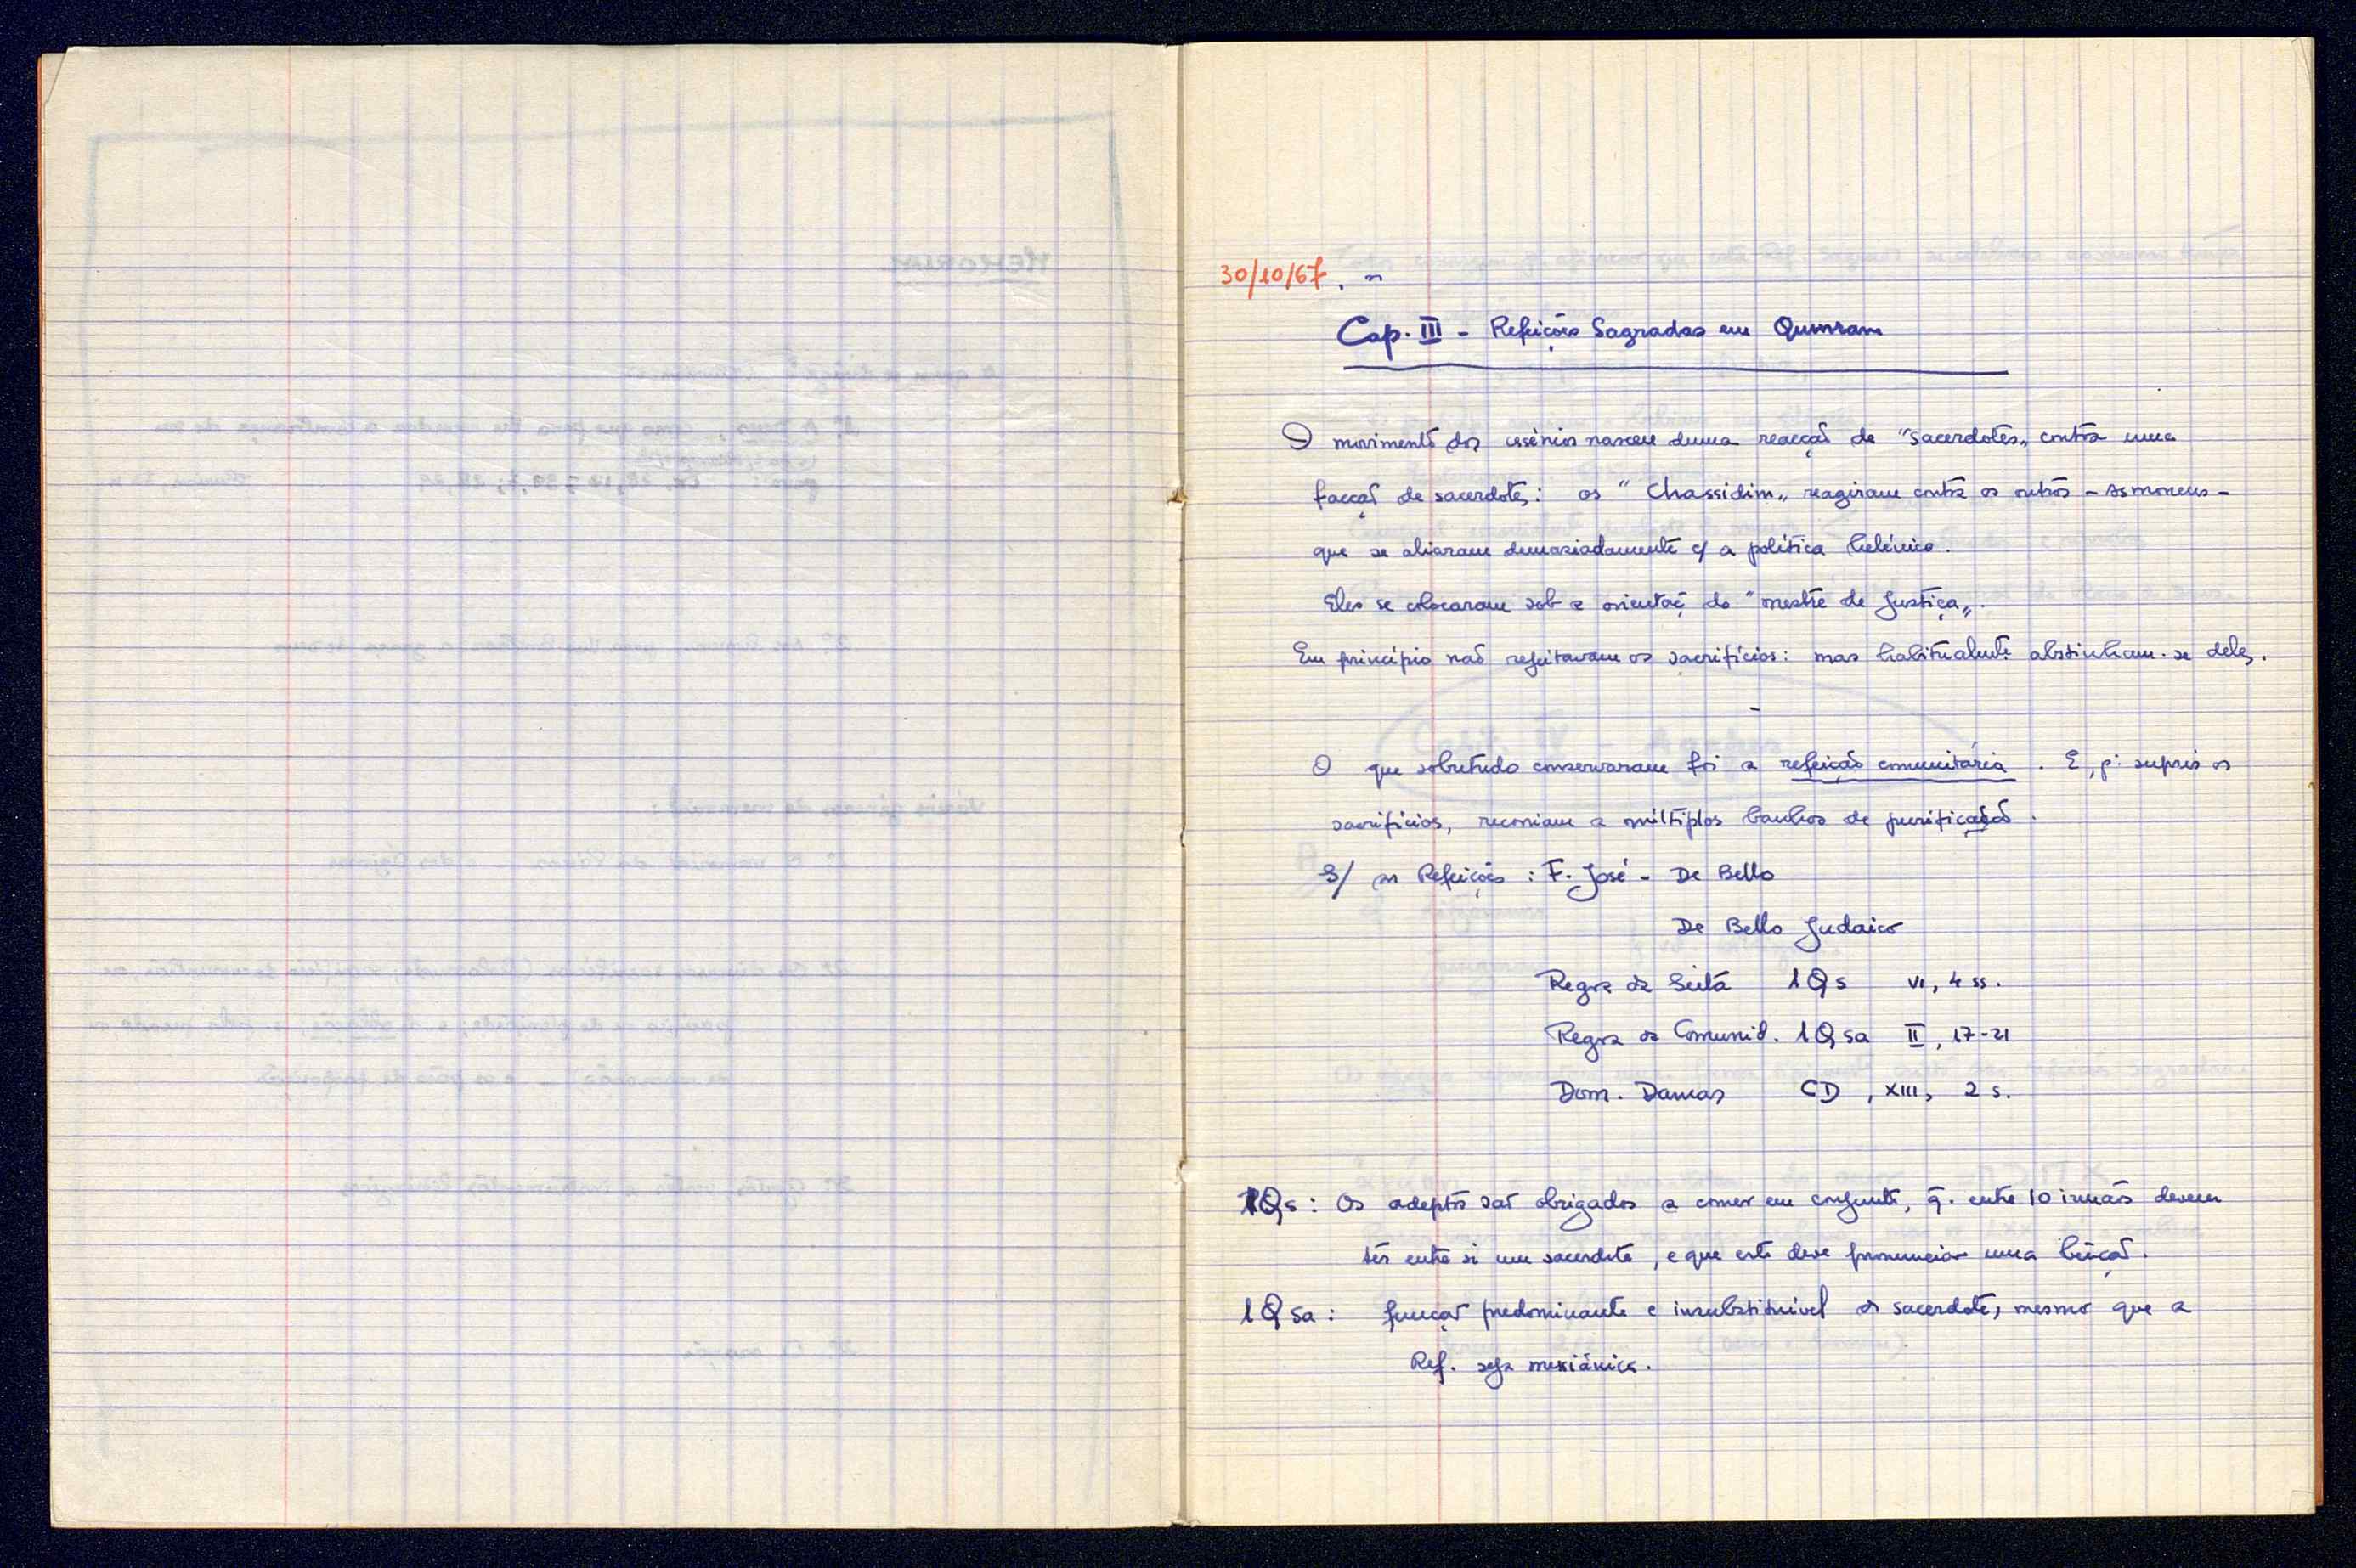 30/10/67. "
Cap. III - Refeições Sagradas em Qumram
O movimento dos essénios nasceu duma reacção de "sacerdotes„ contra uma
facção de sacerdotes: os "Chassidim„ reagiram contra os outros - Asmoneus -
que se aliaram demasiadamente c/ a política helénica.
Eles se colocaram sob a orientaç̃ do "mestre de Justiça„.
Em princípio não rejeitavam os sacrifícios: mas habitualmte abstinham-se deles.
-
O que sobretudo conservaram foi a refeição comunitária. E, p: suprir os
sacrifícios, recorriam a múltiplos banhos de purificação.
S/ as Refeições: F. José - De Bello
De Bello Judaico
Regra da Seita 1QS VI, 4 ss.
Regra da Comunid. 1QSa II, 17-21
Dom. Damas CD, XIII, 2 s.
1QS: Os adeptos são obrigados a comer em conjunto, q̃. entre 10 irmãos devem
ter entre si um sacerdote, e que este deve pronunciar uma bênção.
1QSa: função predominante e insubstituível do sacerdote, mesmo que a
Ref. seja messiânica.